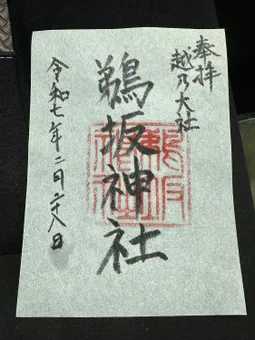 奉拝
越乃大社
鵜坂神社
令和七年二月二十八日